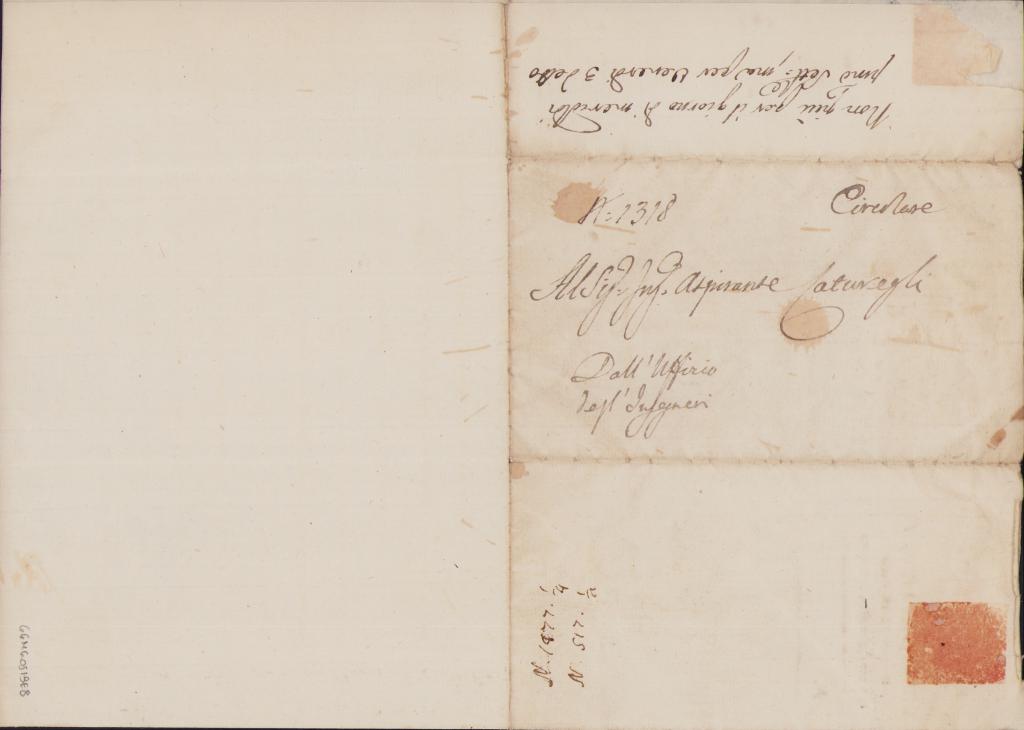 Non più per il giorno di mercoldì
pmo Sett:e ma per Venerdì 3 detto
N.: 1318
Circolare
Al Sig.r Ing.r Aspirante Saturegli
Dall' Uffizio
degl' Ingegneri
N. 1877.
N. 517.